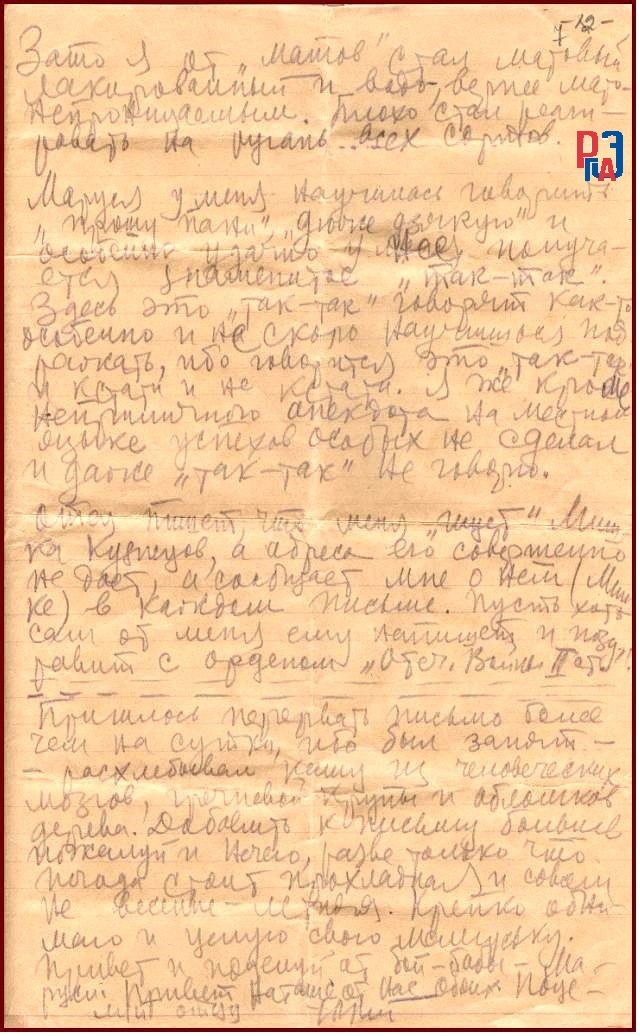 -12-
Зато я от „матов" стал матовый
лакированный и водо-, вернее мато-
непроницаемым. Плохо стал реаги-
ровать на ругань всех сортов.
РГАЭ
Маруся у меня научилась говорить
„прошу пани", „дюже дзякую" и
особенно удачно у нее получа-
ется знаменитое „так-так".
Здесь это „так-так" говорят как-то
особенно и не скоро научишься под
ражать, ибо говорится это „так-так"
и кстати и не кстати. Я же кроме
неприличного анекдота на местном
языке успехов особых не сделал
и даже „так-так" не говорю.
Отец пишет, что меня „ищет" Миш
ка Кузнецов, а адреса его совершенно
не дает, а сообщает мне о нем (Миш
ке) в каждом письме. Пусть хоть
сам от меня ему напишет и позд
равит с орденом „Отеч. Войны II ст."!
Пришлось перервать письмо более
чем на сутки, ибо был занят -
- расхлебывал кашу из человеческих
мозгов, гречневой крупы и обломков
дерева. Добавить к письму больше
пожалуй и нечего, разве только что
погода стоит прохладная и совсем
не весенне-летняя. Крепко обни-
маю и целую свою мамуську.
Привет и поцелуй от бой-бабы - Ма-
руси. Привет Наташе от нас обоих. Поце-
луй отцу